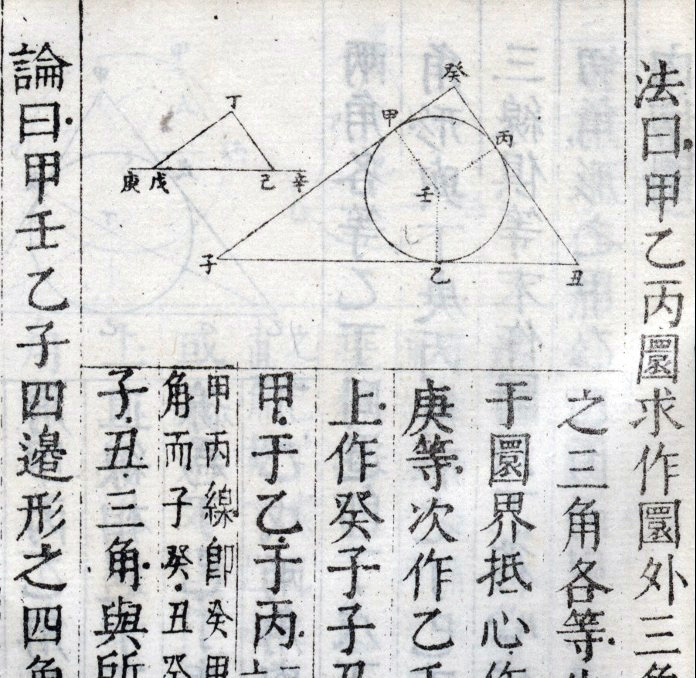 法曰甲乙丙圜求作圜外三角
之三角各等
于圜界抵心作
庚等次作乙壬
上作癸子子丑
甲于乙于丙
甲丙線即癸甲
角而子癸丑癸
子丑三角與所
論曰甲壬乙子四邊形之四角
癸
甲
丙
壬
子
乙
丑
丁
庚
戊
己
辛